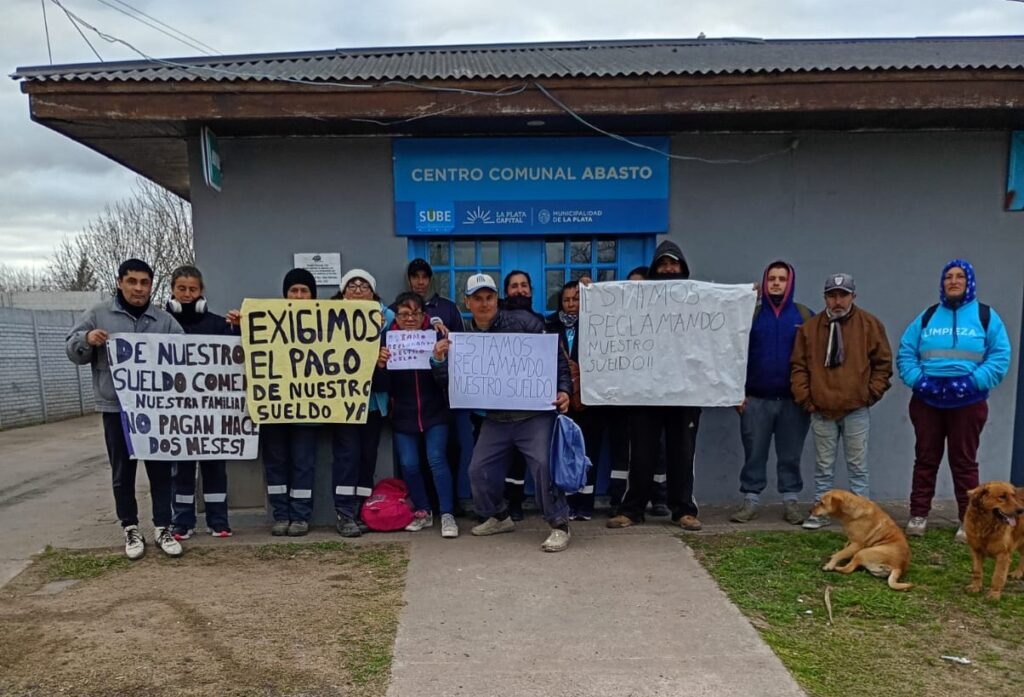 CENTRO COMUNAL ABASTO
SUBE
LA PLATA
CAPITAL
MUNICIPALIDAD
DE LA PLATA
DE NUESTRO
SUELDO COME
NUESTRA FAMILIA!
NO PAGAN HACE
DOS MESES!
EXIGIMOS
EL PAGO
DE NUESTRO
SUELDO YA
ESTAMOS
RECLAMANDO
NUESTRO
SUELDO
ESTAMOS
RECLAMANDO
NUESTRO SUELDO
ESTAMOS
RECLAMANDO
NUESTRO
SUELDO!!
LIMPIEZA